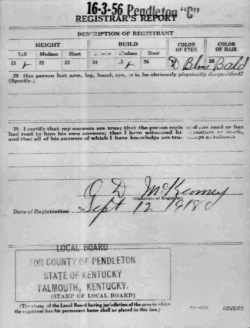 16-3-56 Pendleton "C"
REGISTRAR'S REPORT
DESCRIPTION OF REGISTRANT
HEIGHT BUILD COLOR OF EYES COLOR OF HAIR
Tall Medium Short Slender Medium Stout
21 22 23 24 25 26 27 D Blue 28 Bald
29 Has person lost arm, leg, hand, eye, or is he obviously physically disqualified?
(Specify.)
30 I certify that my answers are true; that the person registered has read or has
had read to him his own answers; that I have witnessed his signature or mark,
and that all of his answers of which I have knowledge are true, except as follows:
O D McKenney
(Signature of Registrar)
Date of Registration Sept 12 1918
LOCAL BOARD
FOR COUNTY OF PENDLETON
STATE OF KENTUCKY
FALMOUTH, KENTUCKY.
(STAMP OF LOCAL BOARD)
(The stamp of the Local Board having jurisdiction of the area in which
the registrant has his permanent home shall be placed in this box.)
(OVER)